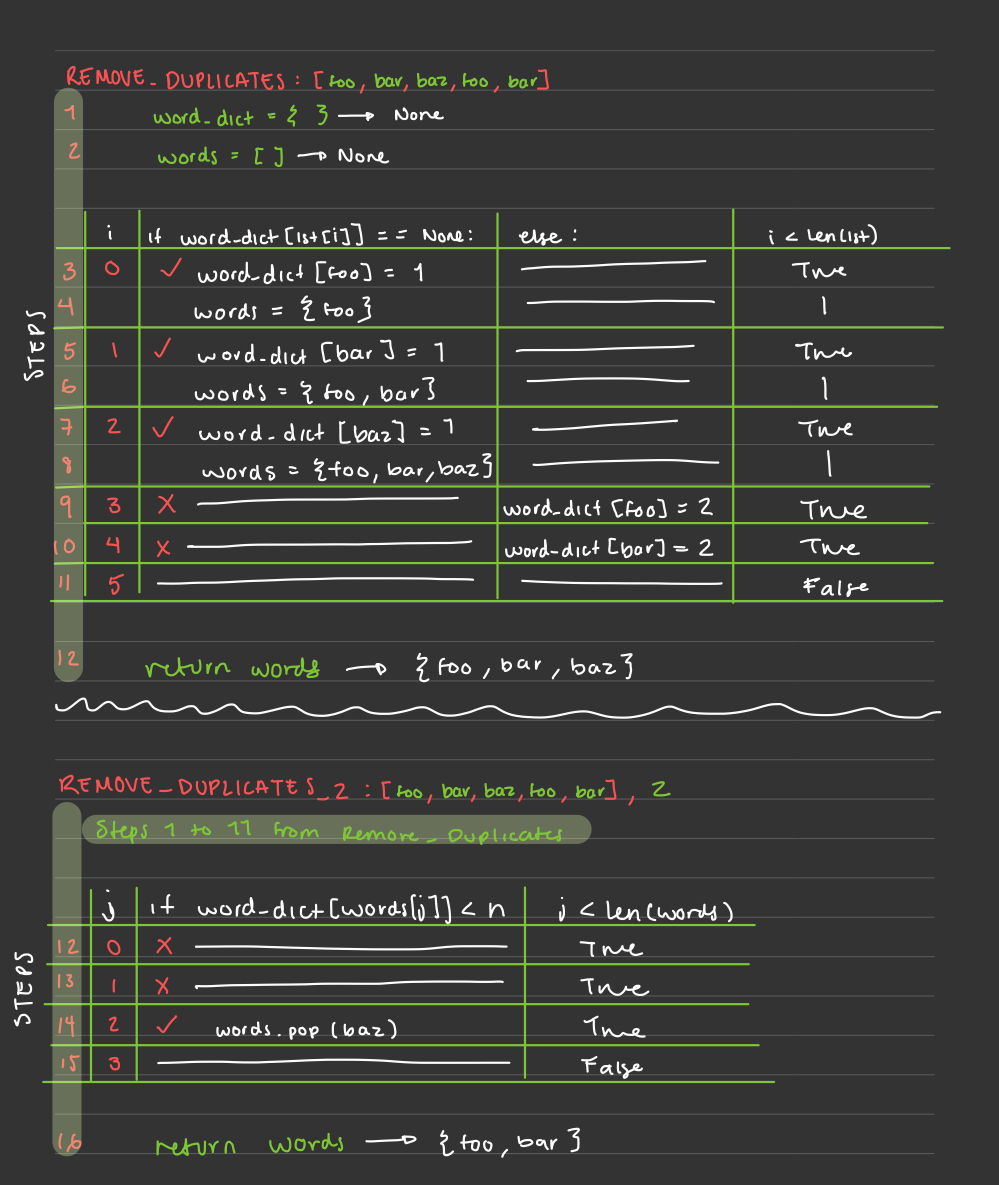 REMOVE_DUPLICATES: [foo, bar, baz, foo, bar]
1 word_dict = { } → None
2 words = [ ] → None
i if word_dict[lst[i]] == None: else: i < len(lst)
3 0 ✓ word_dict [foo] = 1 True
4 words = {foo} |
STEPS
5 1 ✓ word_dict [bar] = 1 True
6 words = {foo, bar} |
7 2 ✓ word_dict [baz] = 1 True
8 words = {foo, bar, baz} |
9 3 X word_dict [foo] = 2 True
10 4 X word_dict [bar] = 2 True
11 5 False
12 return words → {foo, bar, baz}
REMOVE_DUPLICATES_2 : [foo, bar, baz, foo, bar], 2
Steps 1 to 11 from Remove_Duplicates
j if word_dict[words[j]] < n j < len(words)
12 0 X True
STEPS
13 1 X True
14 2 ✓ words.pop (baz) True
15 3 False
16 return words → {foo, bar}